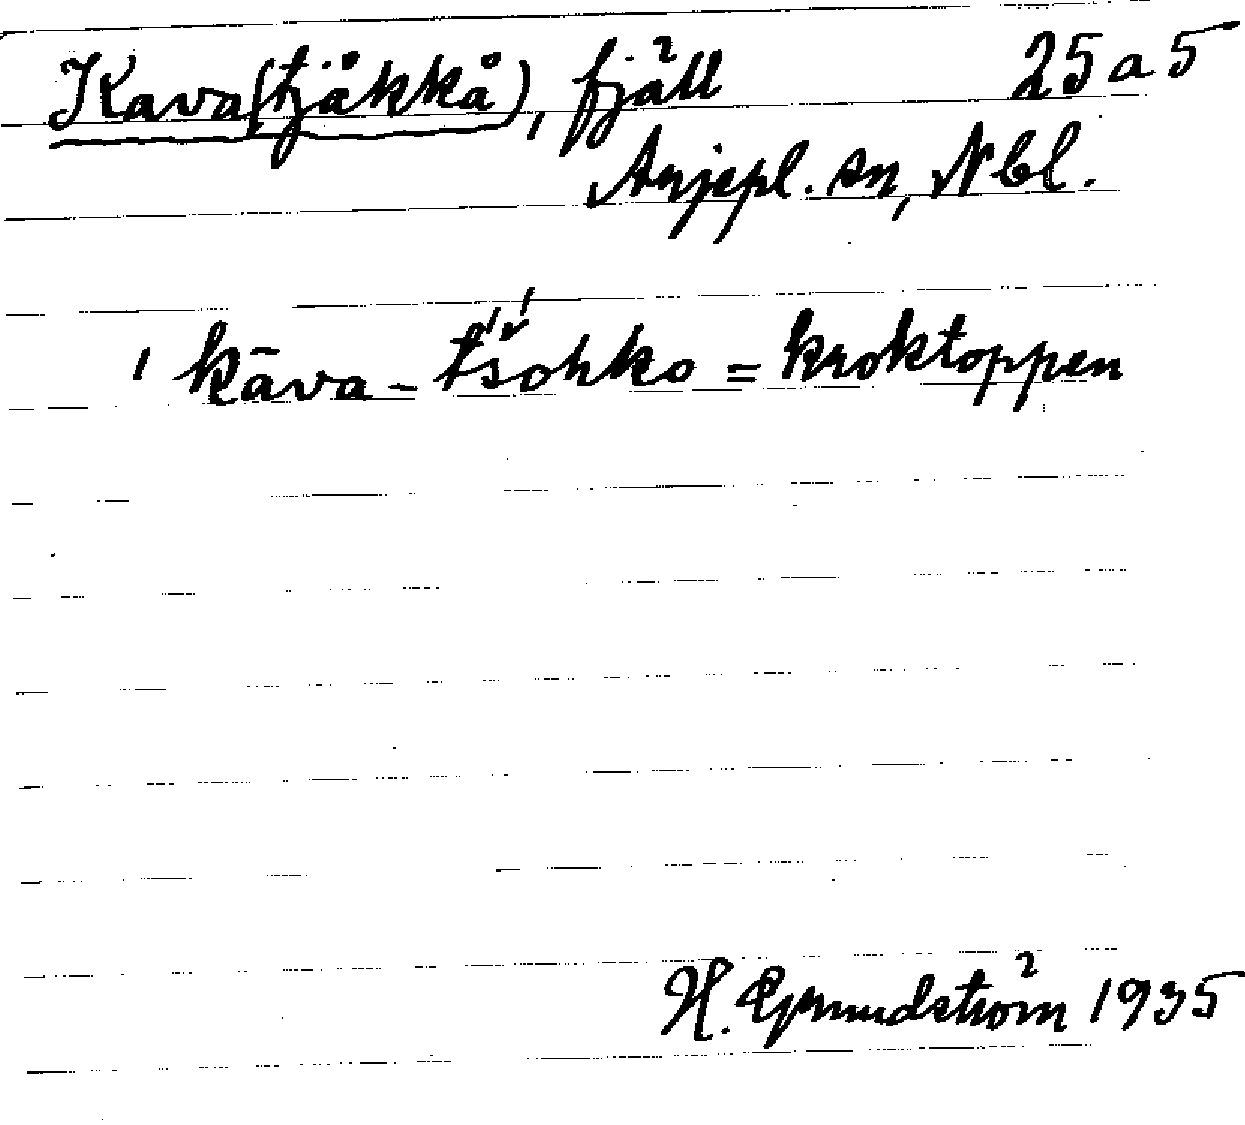 Kava(tjåkkå), fjäll 25 a 5
Arjepl. sn, Nbl.
ˈkāva-tš́ohko = kroktoppen
H. Grundström 1935